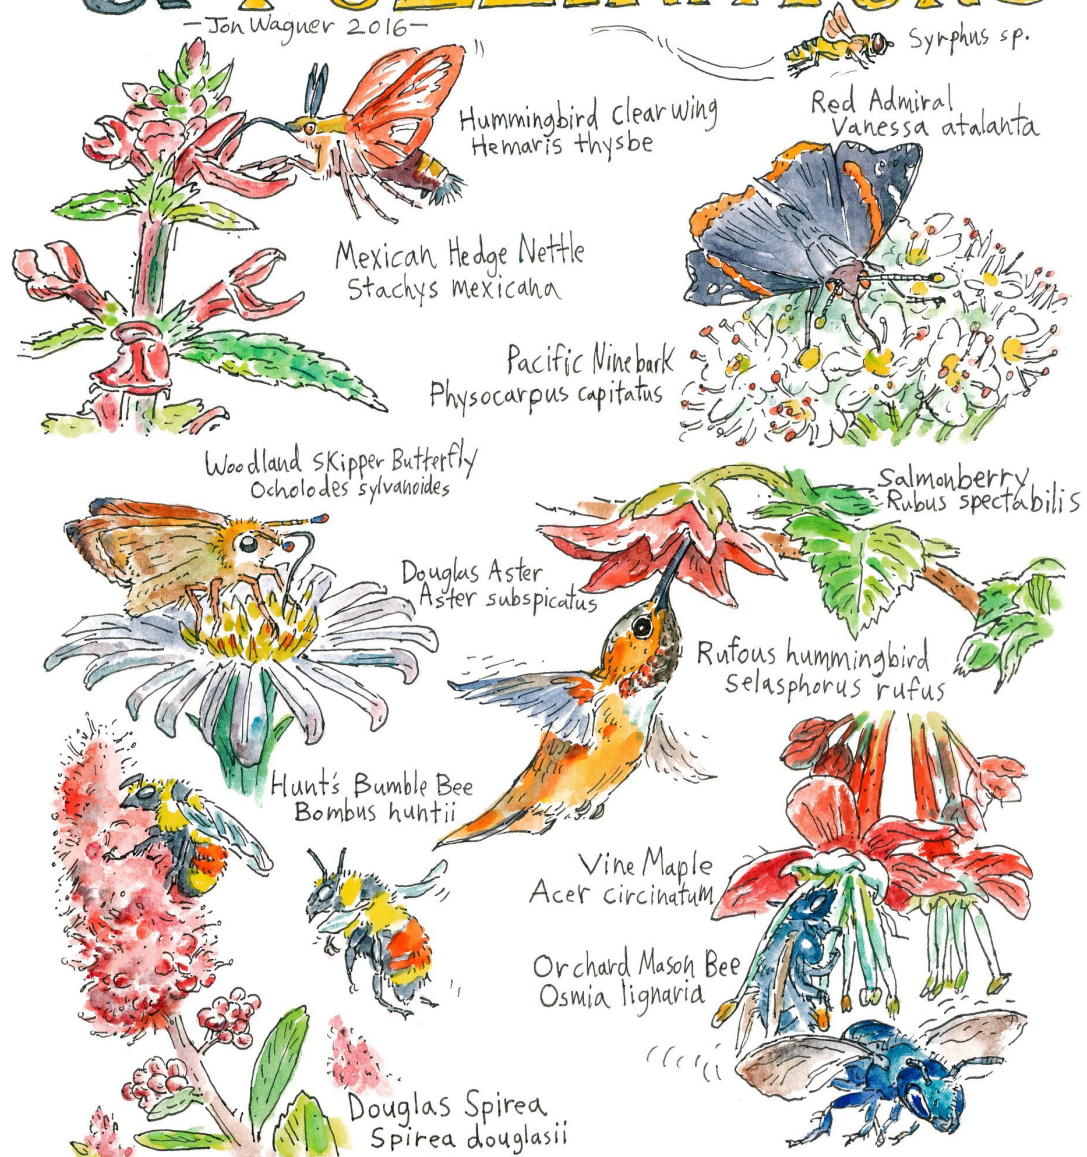 & POLLINATORS
—Jon Wagner 2016—
Syrphus sp.
Hummingbird Clearwing
Hemaris thysbe
Red Admiral
Vanessa atalanta
Mexican Hedge Nettle
Stachys mexicana
Pacific Ninebark
Physocarpus capitatus
Woodland Skipper Butterfly
Ocholodes sylvanoides
Salmonberry
Rubus spectabilis
Douglas Aster
Aster subspicatus
Rufous hummingbird
Selasphorus rufus
Hunt's Bumble Bee
Bombus huntii
Vine Maple
Acer circinatum
Orchard Mason Bee
Osmia lignaria
Douglas Spirea
Spirea douglasii